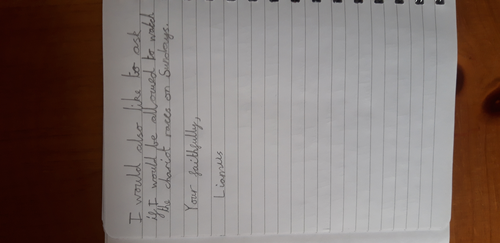 I would also like to ask
if I would be allowed to watch
the chariot races on Sundays.
Your faithfully,
Lianus